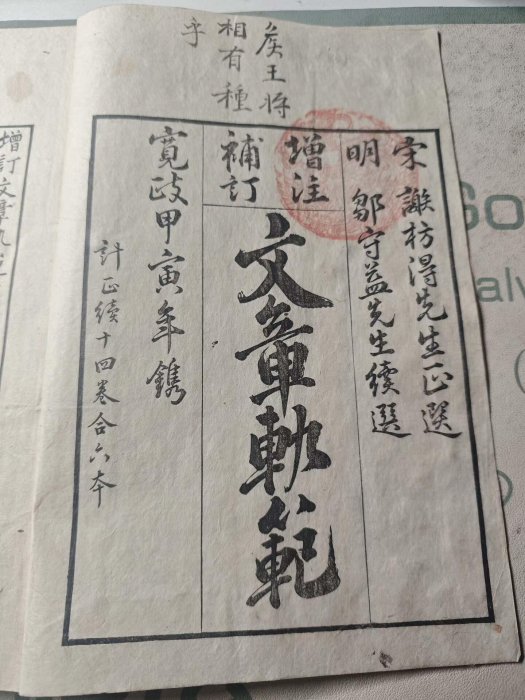 矦王将
相有種
乎
宋 謝枋得先生正選
明 鄒守益先生續選
增注
補訂
文章軌範
寬政甲寅年鐫
計正續十四卷合六本
增訂文章軌
So
alv